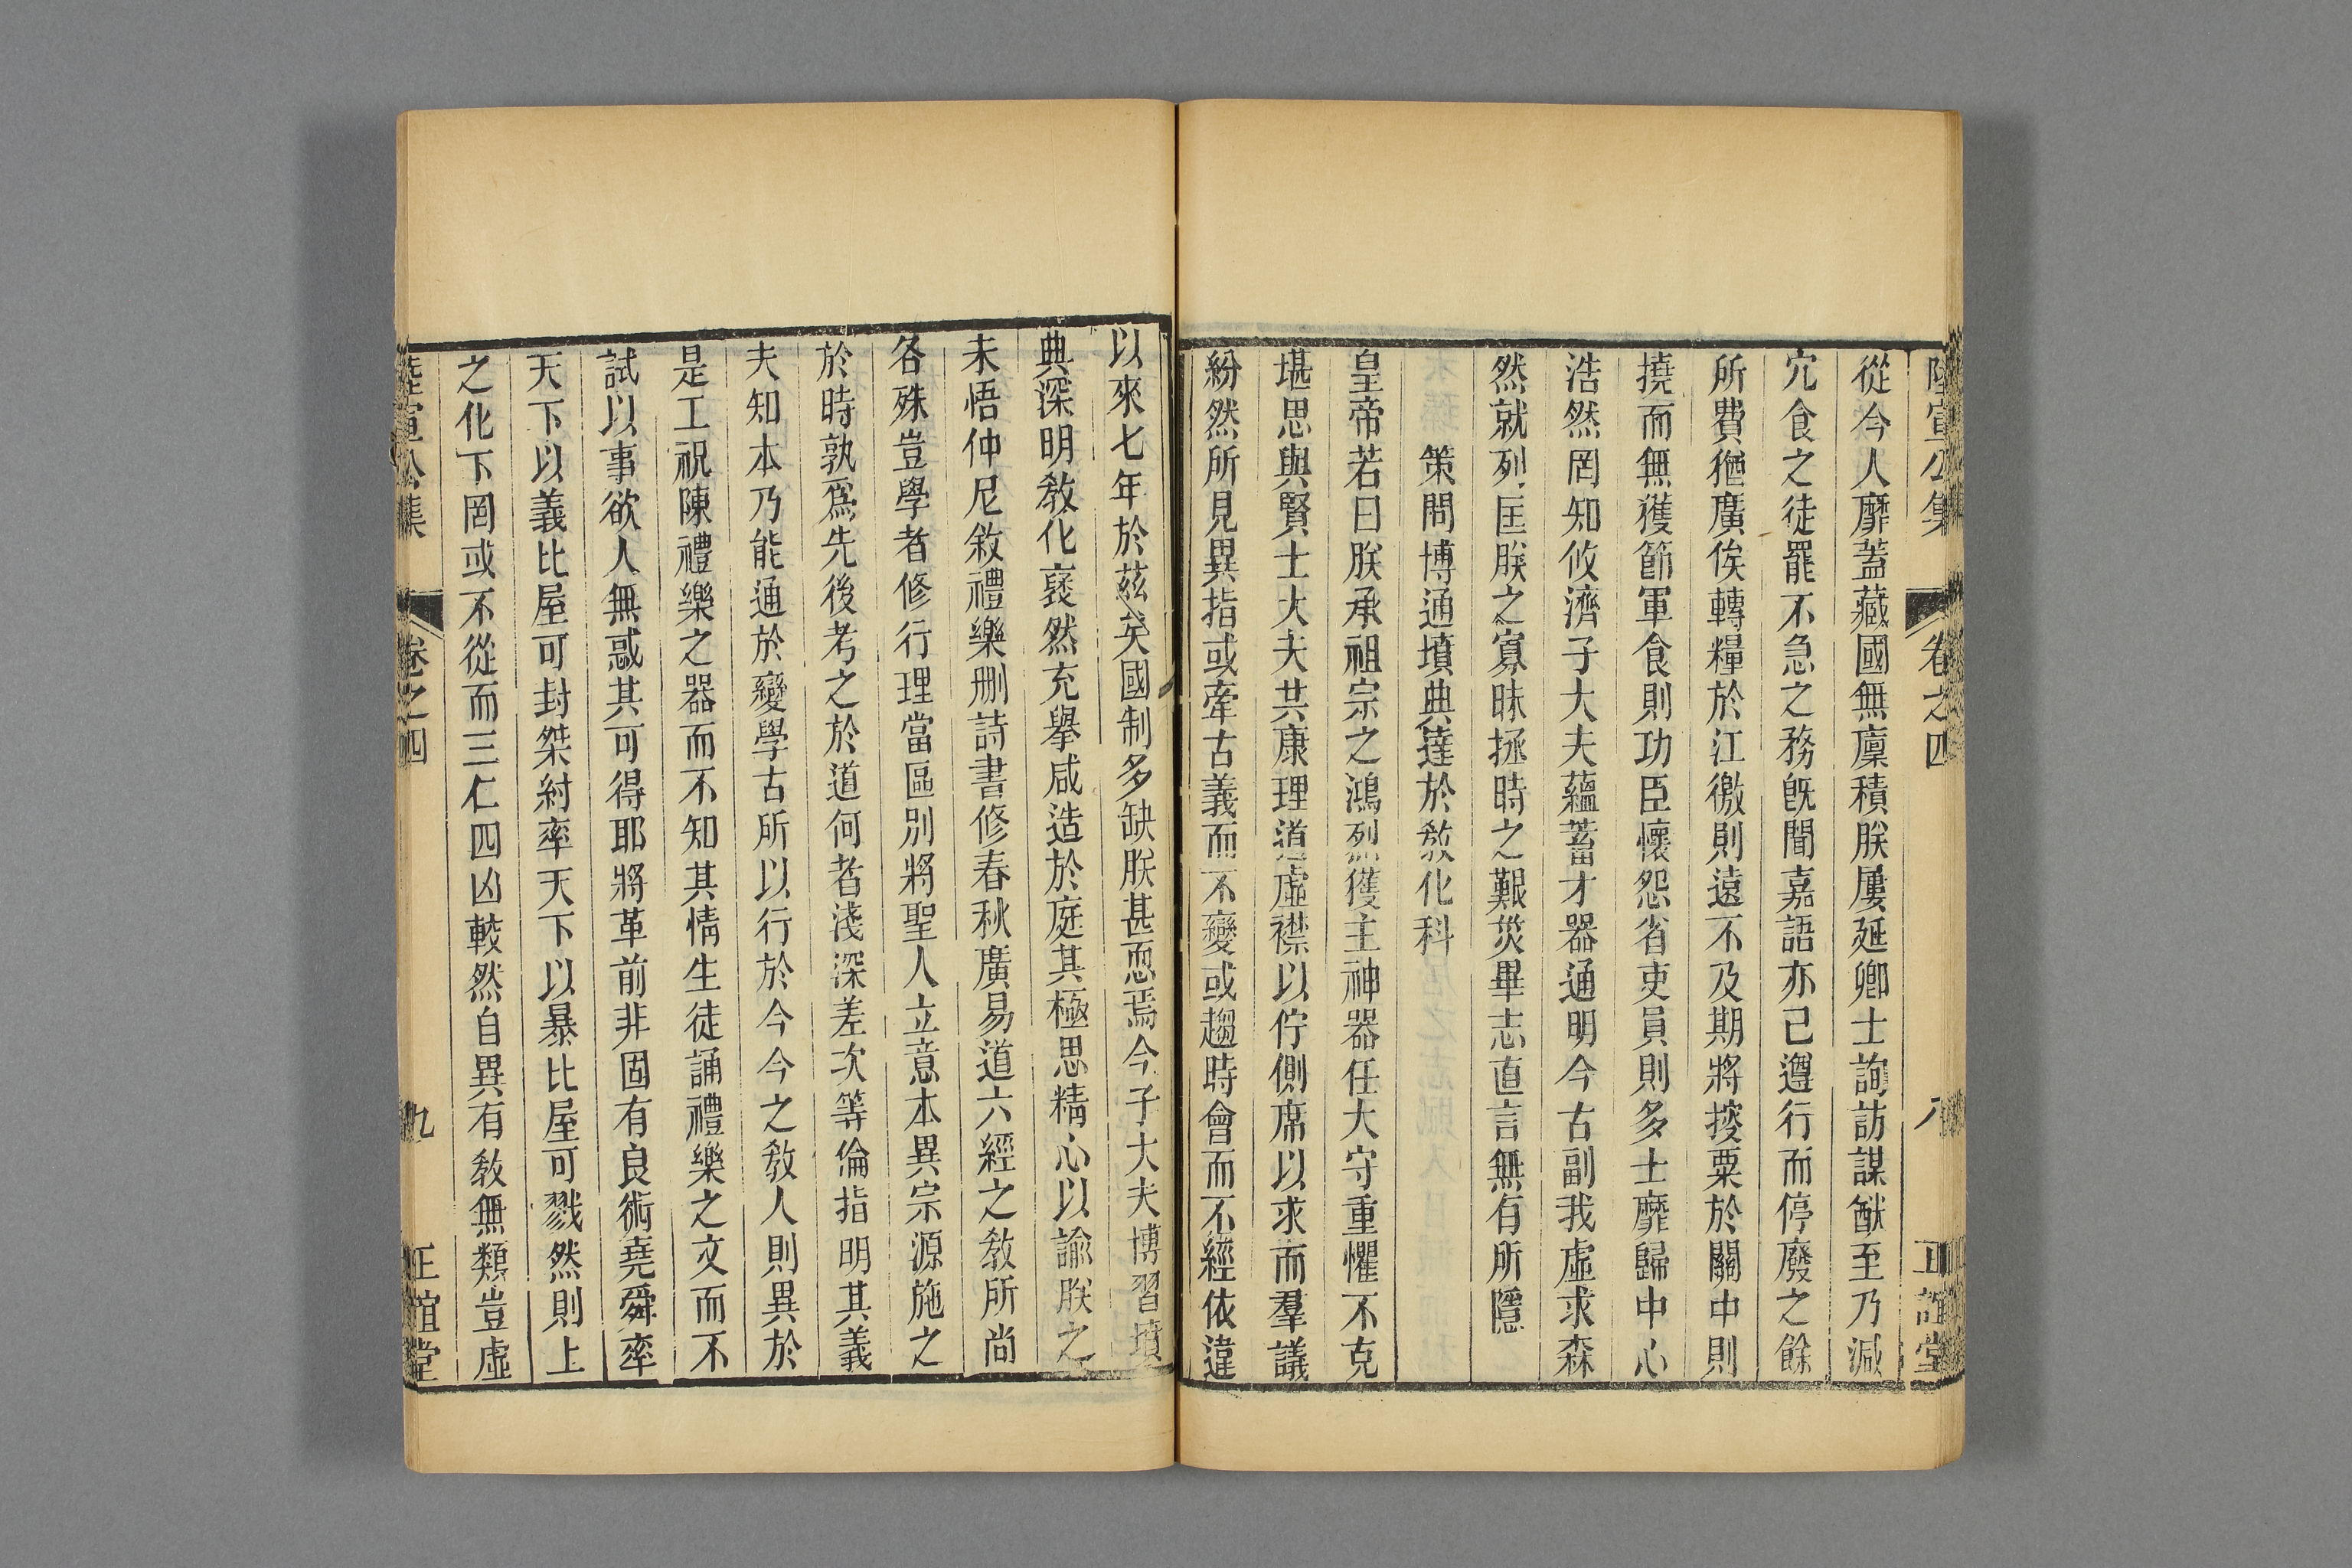 陸宣公集 卷之四 八 正誼堂
從今人靡蓋藏國無廩積朕屢延卿士詢訪謀猷至乃減
冗食之徒罷不急之務旣聞嘉語亦已遵行而停廢之餘
所費猶廣俟轉糧於江徼則遠不及期將搜粟於關中則
撓而無獲節軍食則功臣懷怨省吏員則多士靡歸中心
浩然罔知攸濟子大夫蘊蓄才器通明今古副我虛求森
然就列匡朕之寡昧拯時之艱災畢志直言無有所隱
策問博通墳典達於敎化科
皇帝若曰朕承祖宗之鴻烈獲主神器任大守重懼不克
堪思與賢士大夫共康理道虛襟以佇側席以求而羣議
紛然所見異指或牽古義而不變或趨時會而不經依違
以來七年於茲矣國制多缺朕甚恧焉今子大夫博習墳
典深明敎化褎然充舉咸造於庭其極思精心以諭朕之
未悟仲尼敘禮樂刪詩書修春秋廣易道六經之敎所尚
各殊豈學者修行理當區別將聖人立意本異宗源施之
於時孰爲先後考之於道何者淺深差次等倫指明其義
夫知本乃能通於變學古所以行於今今之敎人則異於
是工祝陳禮樂之器而不知其情生徒誦禮樂之文而不
試以事欲人無惑其可得耶將革前非固有良術堯舜率
天下以義比屋可封桀紂率天下以暴比屋可戮然則上
之化下罔或不從而三仁四凶較然自異有敎無類豈虛
陸宣公集 卷之四 九 正誼堂